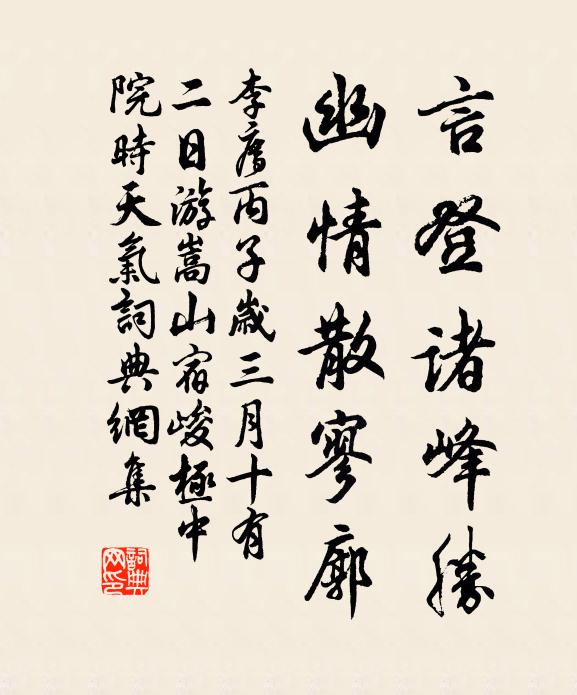 言登諸峰勝
幽情散寥廓
李廌丙子歲三月十有
二日游嵩山宿峻極中
院時天氣詞典網集
詞典网印